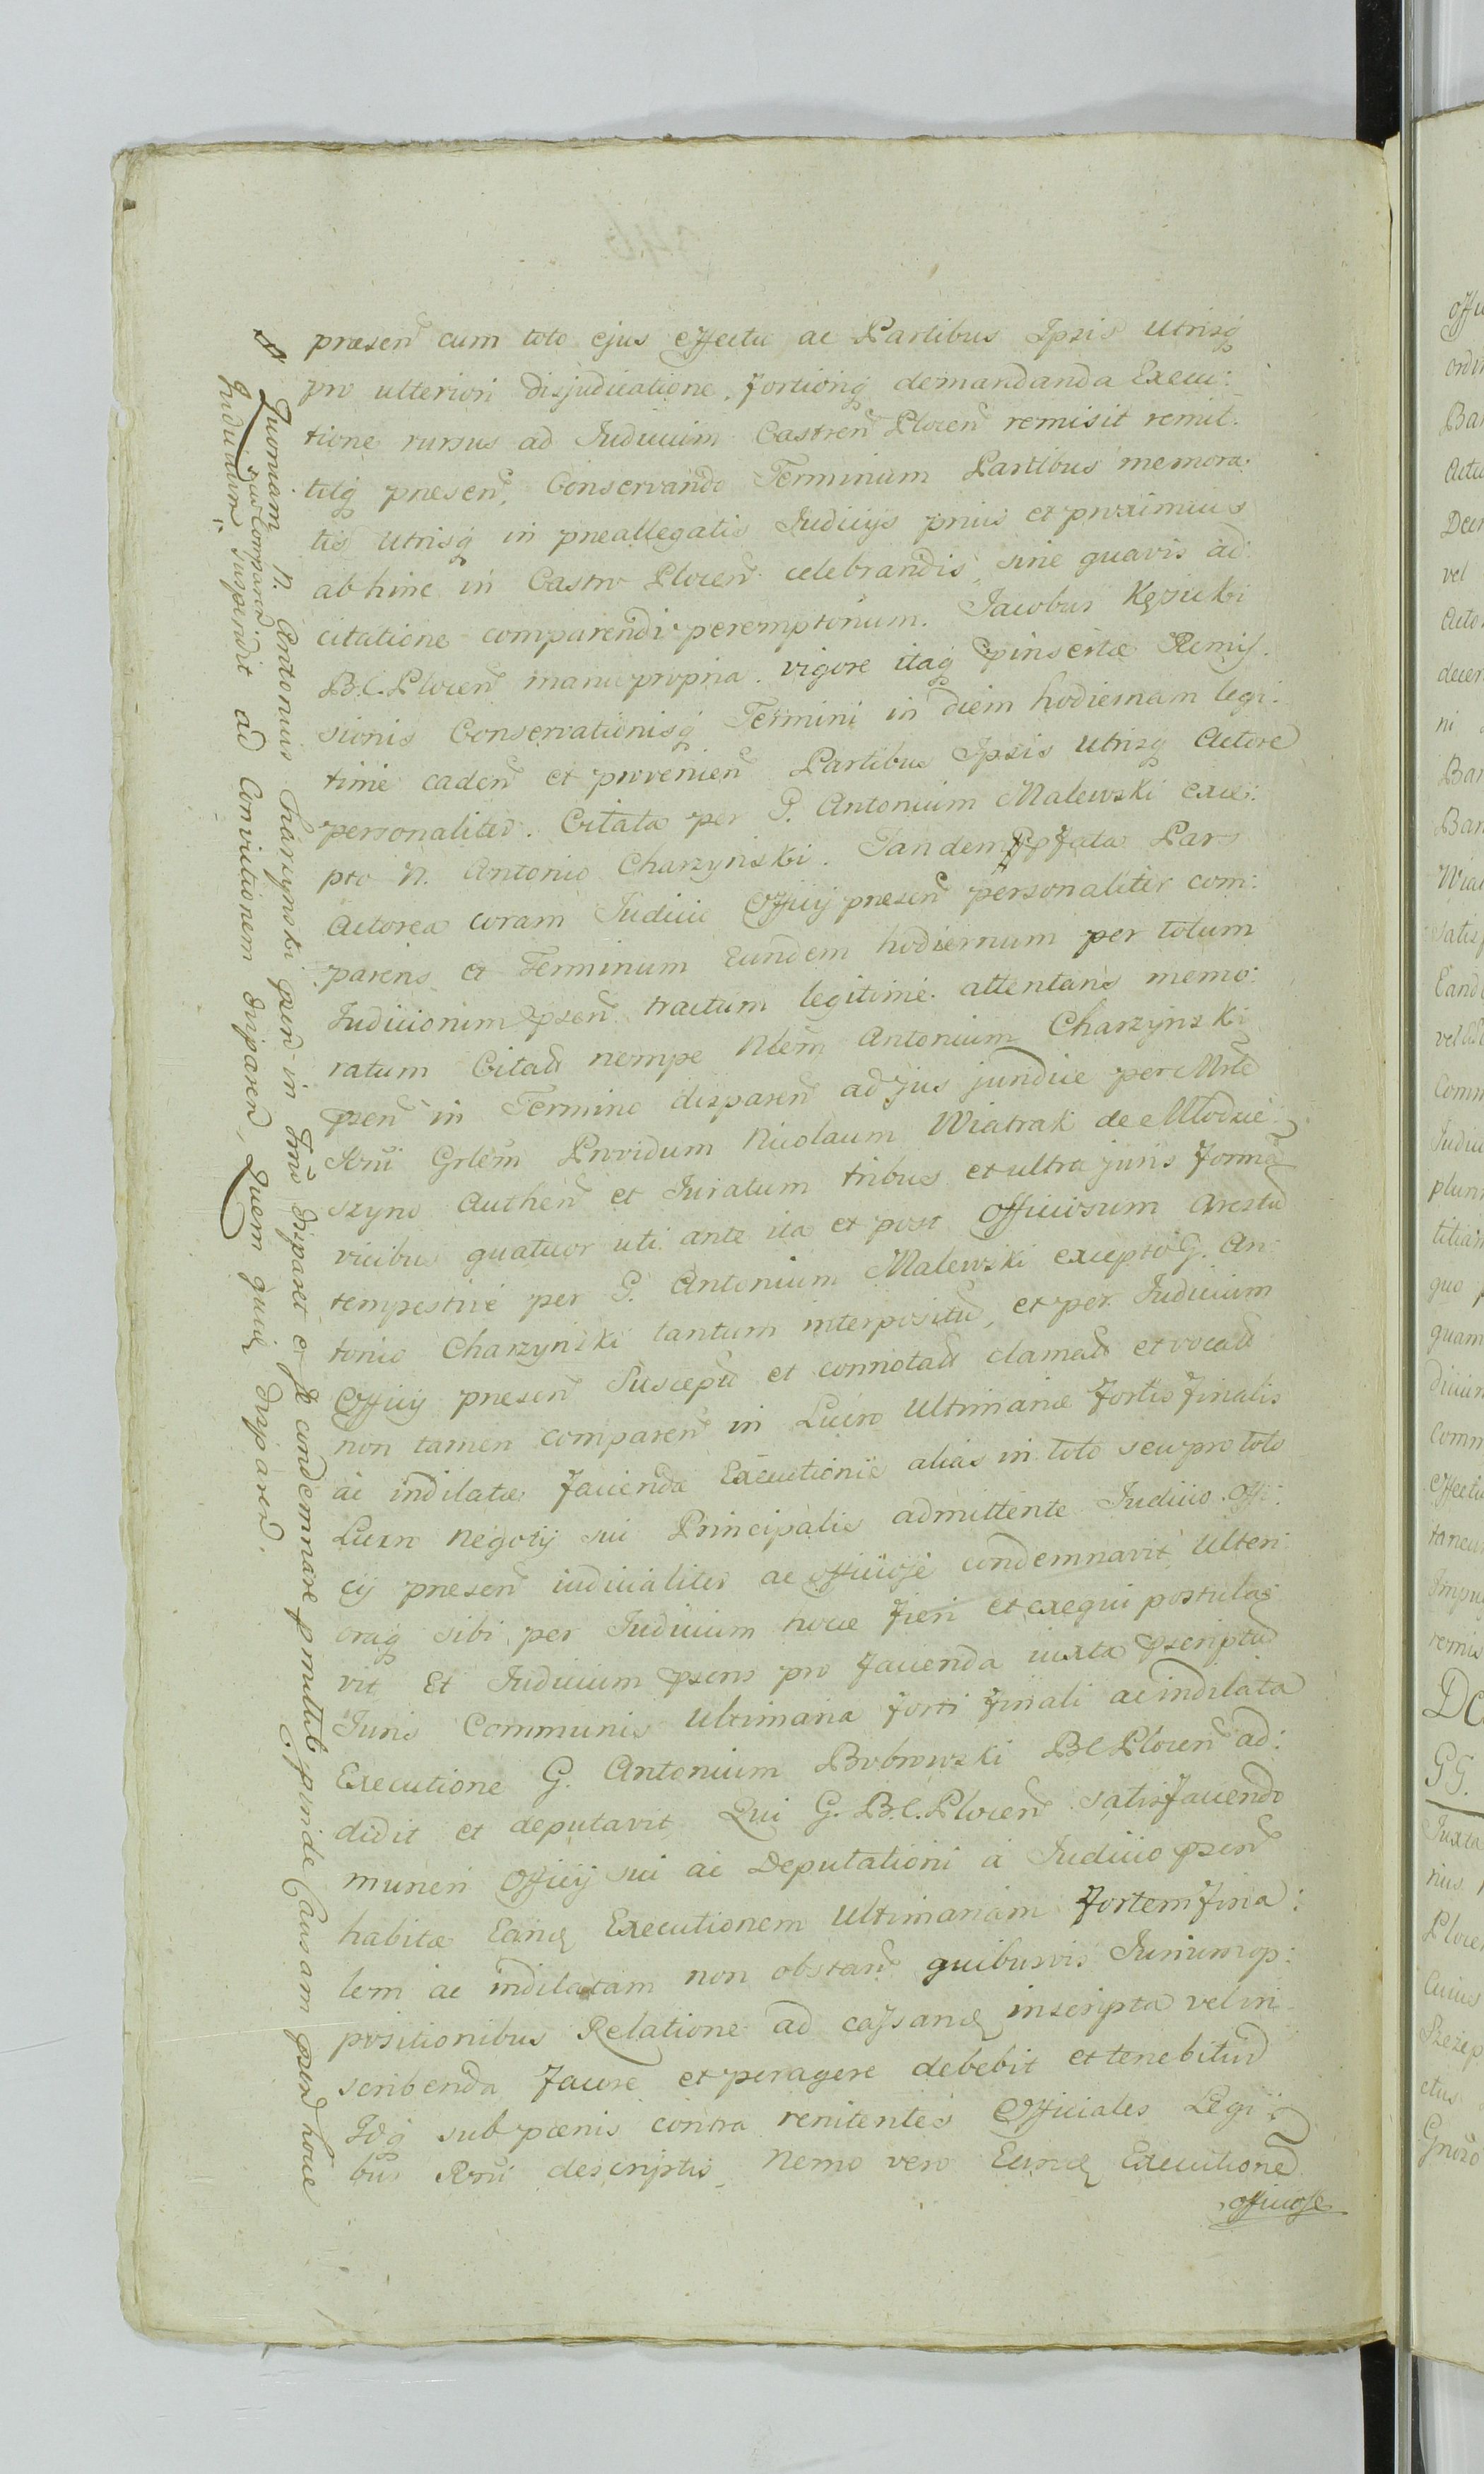 præsen cum toto ejus effectu ac Partibus Ipsis Utrisq
pro ulteriori disjudicatione, fortioriq demandanda Execu:
tione rursus ad Iudicium Castren Plocen remisit remit:
titq præsen, Conservando Terminum Partibus memora:
tis Utrisq in præallegatis Iudicijs prius et proximius
abhinc in Castro Plocen celebrandis, sine quavis ad:
citatione comparendi peremptorium. Jacobus Kęsicki
B.C. Plocen manu propria. vigore itaq pinsertæ Remis:
sionis Conservationisq Termini in diem hodiernam legi:
time caden et provenien Partibus Ipsis Utrisq Actore
personaliter. Citata per G. Antonium Malewski exce:
pto N. Antonio Charzyński. Tandem ppfata Pars
Actorea coram Iudicio Officij præsen personaliter com:
parens et Terminum Eundem hodiernum per totum
Iudiciorum psen tractum legitime attentans memo:
ratum Citatt nempe Nlem Antonium Charzynski
psen in Termino disparen ad jus juridice per Mrlē
Rrni Grlem Providum Nicolaum Wiatrak de Młodzie:
szyno Authen et Iuratum tribus et ultra juris forma
vicibus quatuor uti ante ita et post Officiosum Arestū
tempestive per G. Antonium Malewski excepto G. An:
tonio Charzyński tantum interpositū, et per Iudicium
Officij præsen Susceptū et connotatt clamatt et vocatt
non tamen comparen in Lucro Ultimariæ fortis finalis
ac indilatæ faciendæ Executionis alias in toto seu pro toto
Lucro Negotij sui Principalis admittente Iudicio Offi:
cij præsen iudicialiter ac officiose condemnavit, Ulteri:
oraq sibi per Iudicium hocce fieri et exequi postula:
vit Et Iudicium psens pro facienda iuxta pscriptū
Iuris Communis Ultimaria forti finali ac indilata
Executione G. Antonium Bobrowski BC Plocen ad:
didit et deputavit Qui G. B.C. Plocen satisfaciendo
muneri Officij sui ac Deputationi a Iudicio psen
habitæ Eand Executionem Ultimariam fortem fina:
lem ac indilatam non obstan quibusvis Iurium op:
positionibus Relatione ad cassand inscripta vel in:
scribenda facere et peragere debebit et tenebitur
Idq sub pænis contra renitentes Officiales Legi:
bus Rrni descriptis, Nemo vero Eand Executionē
officiose
Quoniam N. Antonius Charzynski psen in Trno disparet et se condemnare pmittit, pinde Causam psen hocce
Iudicium suspendit ad Convictionem disparen, Quem quia disparen.